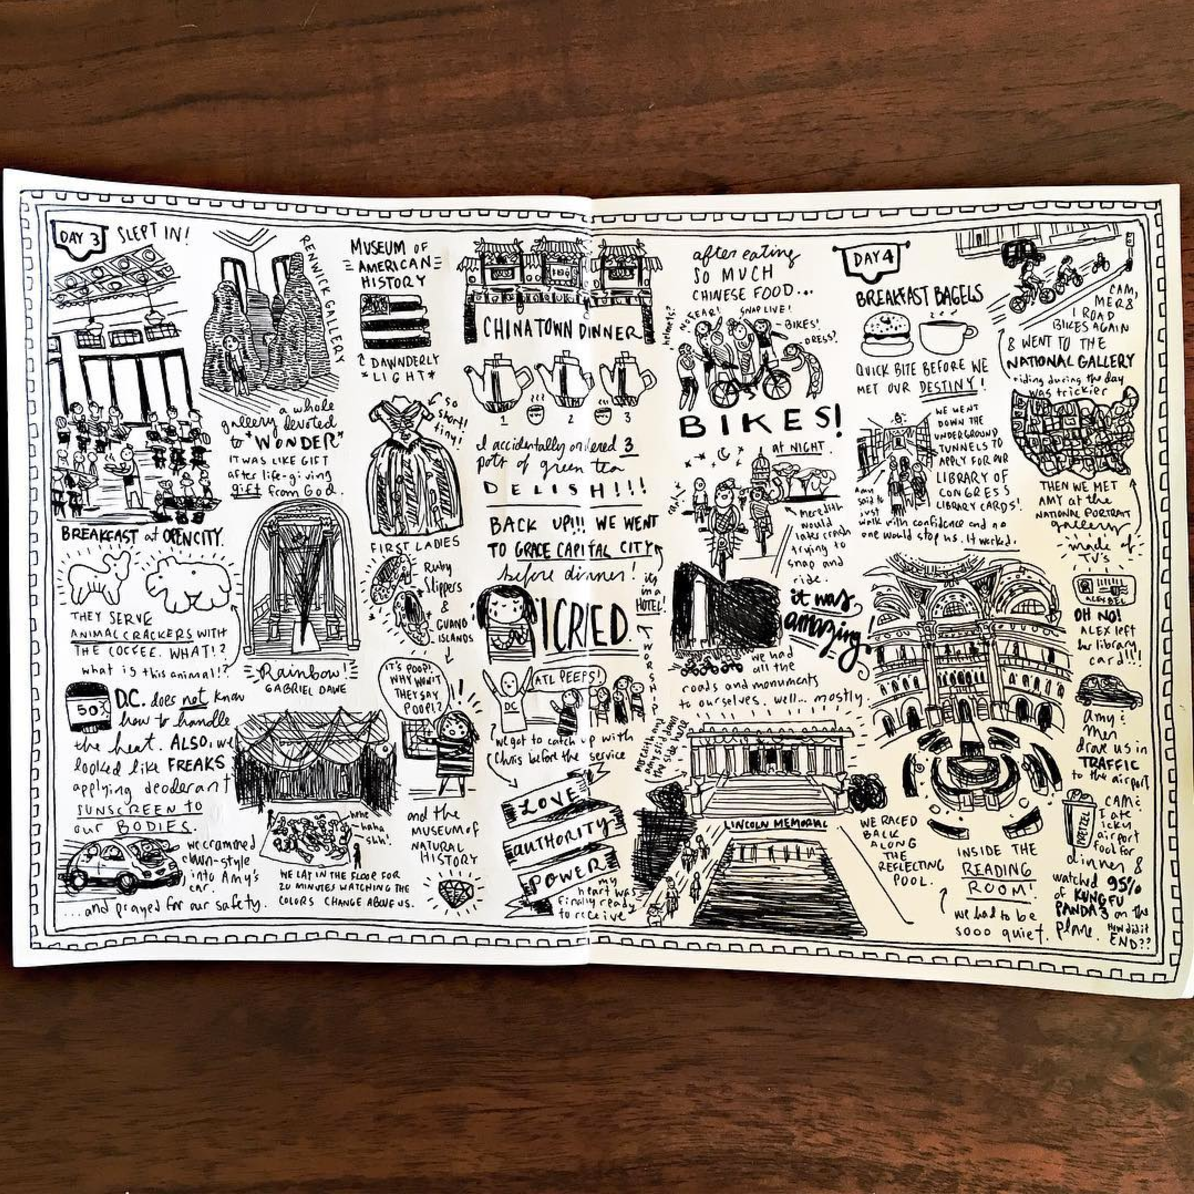 DAY 3
SLEPT IN!
BREAKFAST at OPEN CITY.
THEY SERVE
ANIMAL CRACKERS WITH
THE COFFEE. WHAT!?
what is this animal!?
50%
D.C. does not know
how to handle
the heat. ALSO, we
looked like FREAKS
applying deodorant
SUNSCREEN TO
our BODIES.
we crammed
clown-style
into Amy's
car.
...and prayed for our safety.
RENWICK GALLERY
a whole
gallery devoted
to "WONDER"
IT WAS LIKE GIFT
after life-giving
gift from God.
Rainbow!
GABRIEL DAWE
hehe
haha
shh!
WE LAY IN THE FLOOR FOR
20 MINUTES WATCHING THE
COLORS CHANGE ABOVE US.
MUSEUM OF
AMERICAN
HISTORY
DAWNDERLY
*LIGHT*
so
short!
tiny!
FIRST LADIES
Ruby
Slippers
&
GUANO
ISLANDS
IT'S POOP!
WHY WON'T
THEY SAY
POOP!?
and the
MUSEUM of
NATURAL
HISTORY
CHINATOWN DINNER
1 2 3
I accidentally ordered 3
pots of green tea
DELISH!!!
BACK UP!!! WE WENT
TO GRACE CAPITAL CITY
before dinner!
its
in a
HOTEL!
I CRIED.
WORSHIP
DC
ATL PEEPS!
We got to catch up with
Chris before the service
LOVE
AUTHORITY
POWER
my
heart was
finally ready
to receive
after eating
SO MUCH
CHINESE FOOD...
helmets?
NO FEAR!
SNAP LIVE!
BIKES!
DRESS!
BIKES!
AT NIGHT.
Meredith
would
take crash
trying to
snap and
ride.
it was
amazing!
we had
all the
roads and monuments
to ourselves. well... mostly.
LINCOLN MEMORIAL
WE RACED
BACK
ALONG
THE
REFLECTING
POOL.
DAY 4
BREAKFAST BAGELS
QUICK BITE BEFORE WE
MET OUR DESTINY!
WE WENT
DOWN THE
UNDERGROUND
TUNNELS TO
APPLY FOR OUR
LIBRARY OF
CONGRESS
LIBRARY CARDS!
Amy said to
just
walk with confidence and no
one would stop us. It worked.
INSIDE THE
READING
ROOM!
we had to be
sooo quiet.
CAM,
MER &
I ROAD
BIKES AGAIN
& WENT TO THE
NATIONAL GALLERY
riding during the day
was trickier
THEN WE MET
AMY at the
NATIONAL PORTRAIT
gallery
made of
TV's
OH NO!
ALEX left
her library
card!!!
Amy &
Mer
drove us in
TRAFFIC
to the airport
PRETZEL
CAM &
I ate
icky
airport
food for
dinner &
watched 95%
of KUNGFU
PANDA 3 on the
plane.
How did it
END??